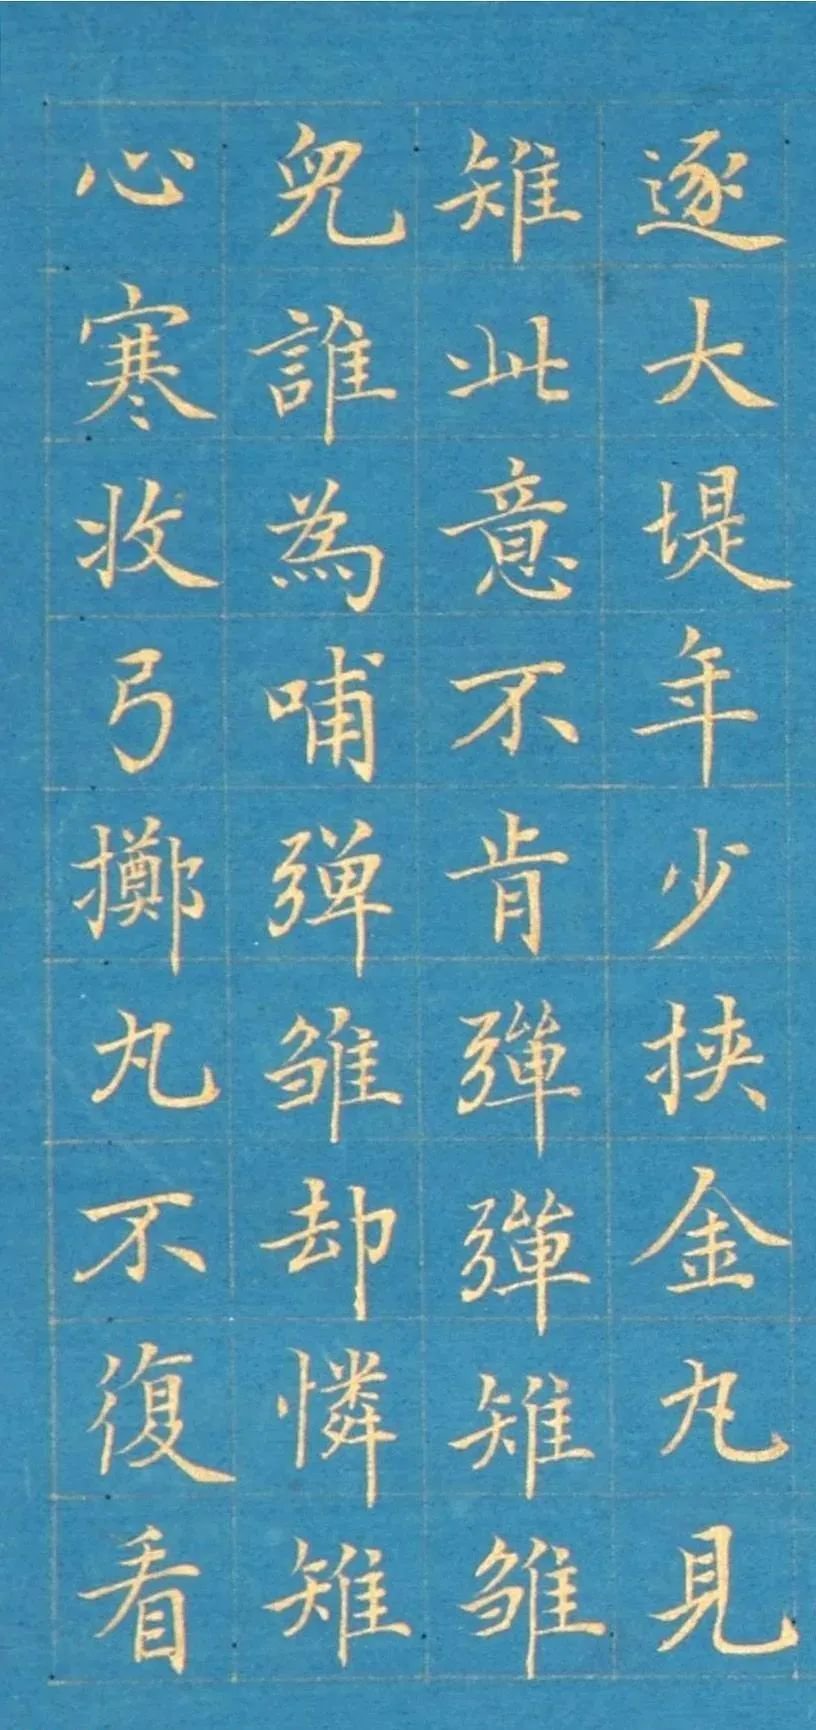 逐大堤年少挾金丸見
雉此意不肯彈彈雉雛
兒誰為哺弾雛却憐雉
心寒收弓擲丸不復看